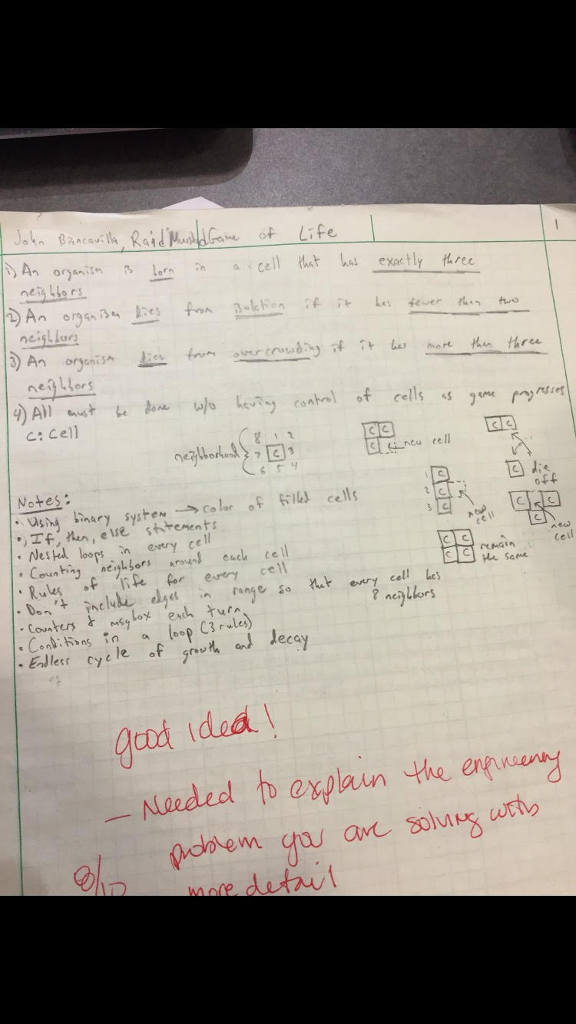 John Biancavilla, Raid Game of Life 1
1) An organism is born in a cell that has exactly three
neighbors
2) An organism dies from isolation if it has fewer than two
neighbors
3) An organism dies from overcrowding if it has more than three
neighbors
4) All must be done w/o having control of cells as game progresses
C: Cell
neighborhood { 8 1 2
7 C 3
6 5 4
C C
C new cell
1 C
2 C
3 C
new cell
C C
C C
remain the same
C C
C die off
C C
C
new cell
Notes:
• Using binary system → color of filled cells
• If, then, else statements
• Nested loops in every cell
• Counting neighbors around each cell
• Rules of life for every cell
• Don't include edges in range so that every cell has
8 neighbors
• Counters & msgbox each turn
• Conditions in a loop (3 rules)
• Endless cycle of growth and decay
good idea!
— Needed to explain the engineering
problem you are solving with
more detail
8/10